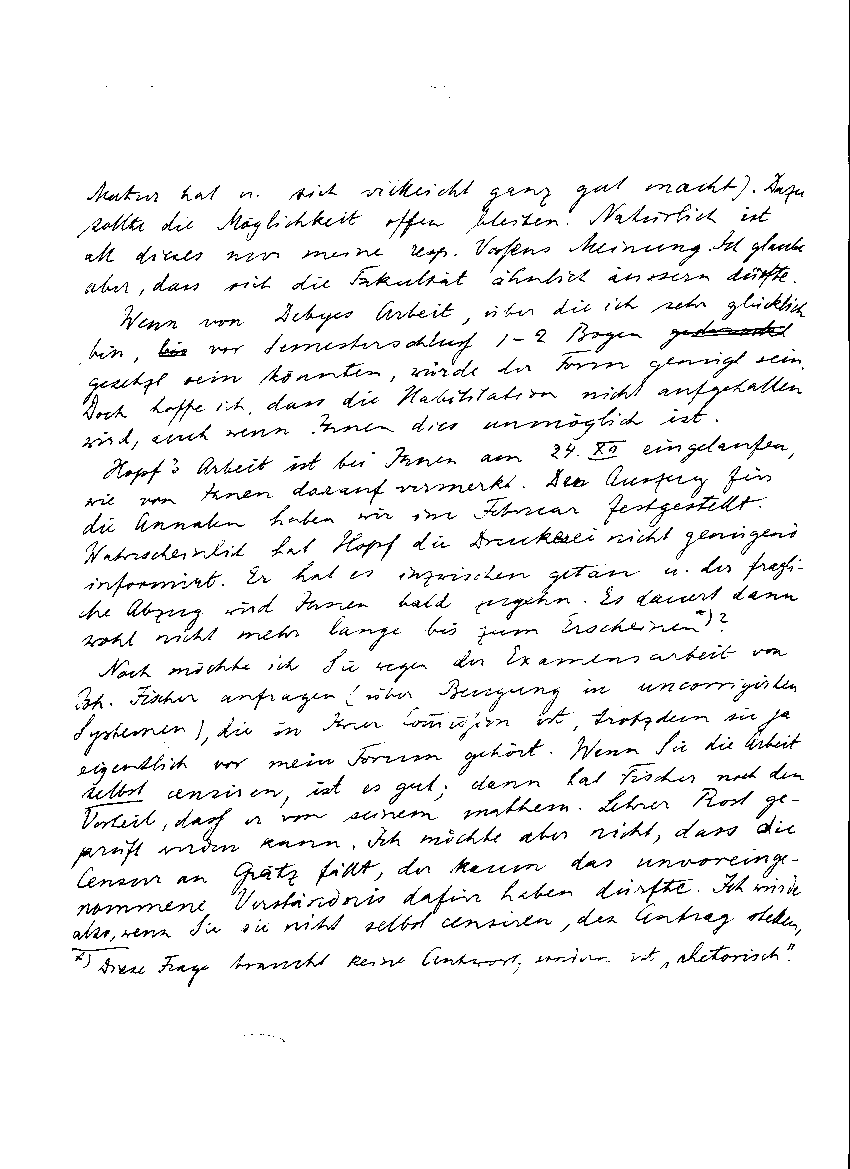 Natur hat u. sich vielleicht ganz gut macht). Dazu
sollte die Möglichkeit offen bleiben. Natürlich ist
all dieses nur meine resp. Vossens Meinung. Ich glaube
aber, dass sich die Fakultät ähnlich äussern dürfte.
Wenn von Debyes Arbeit, über die ich sehr glücklich
bin, bis vor Semesterschluss 1-2 Bogen
gesetzt sein könnten, würde der Form genügt sein.
Doch hoffe ich, dass die Habilitation nicht aufgehalten
wird, auch wenn Ihnen dies unmöglich ist.
Hopf's Arbeit ist bei Ihnen am 24. XII eingelaufen,
wie von Ihnen darauf vermerkt. Den Auszug für
die Annalen haben wir im Februar festgestellt.
Wahrscheinlich hat Hopf die Druckerei nicht genügend
informirt. Er hat es inzwischen getan u. der fragli-
che Abzug wird Ihnen bald zugehn. Es dauert dann
wohl nicht mehr lange bis zum Erscheinen*)?
Noch möchte ich Sie wegen der Examensarbeit von
Fischer anfragen (über Beugung in uncorrigirten
Systemen), die in Ihrer Commission ist, trotzdem sie ja
eigentlich vor mein Forum gehört. Wenn Sie die Arbeit
selbst censiren, ist es gut; dann hat Fischer noch den
Vorteil, dass er von seinem mathem. Lehrer Rost ge-
prüft werden kann. Ich möchte aber nicht, dass die
Censur an Grätz fällt, der kaum das unvoreinge-
nommene Verständnis dafür haben dürfte. Ich würde
also, wenn Sie sie nicht selbst censiren, den Antrag stellen,
*) Diese Frage braucht keine Antwort, sondern ist „rhetorisch".